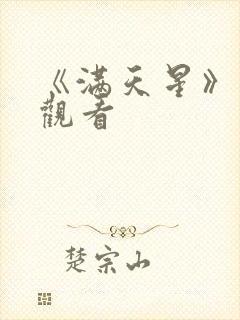 《滿天星》
觀看
楚宗山